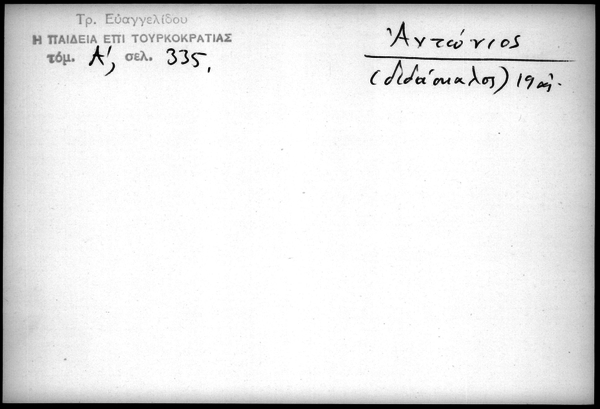 Τρ. Εὐαγγελίδου
Η ΠΑΙΔΕΙΑ ΕΠΙ ΤΟΥΡΚΟΚΡΑΤΙΑΣ
τόμ. Α', σελ. 335.
Ἀντώνιος
(διδάσκαλος) 19